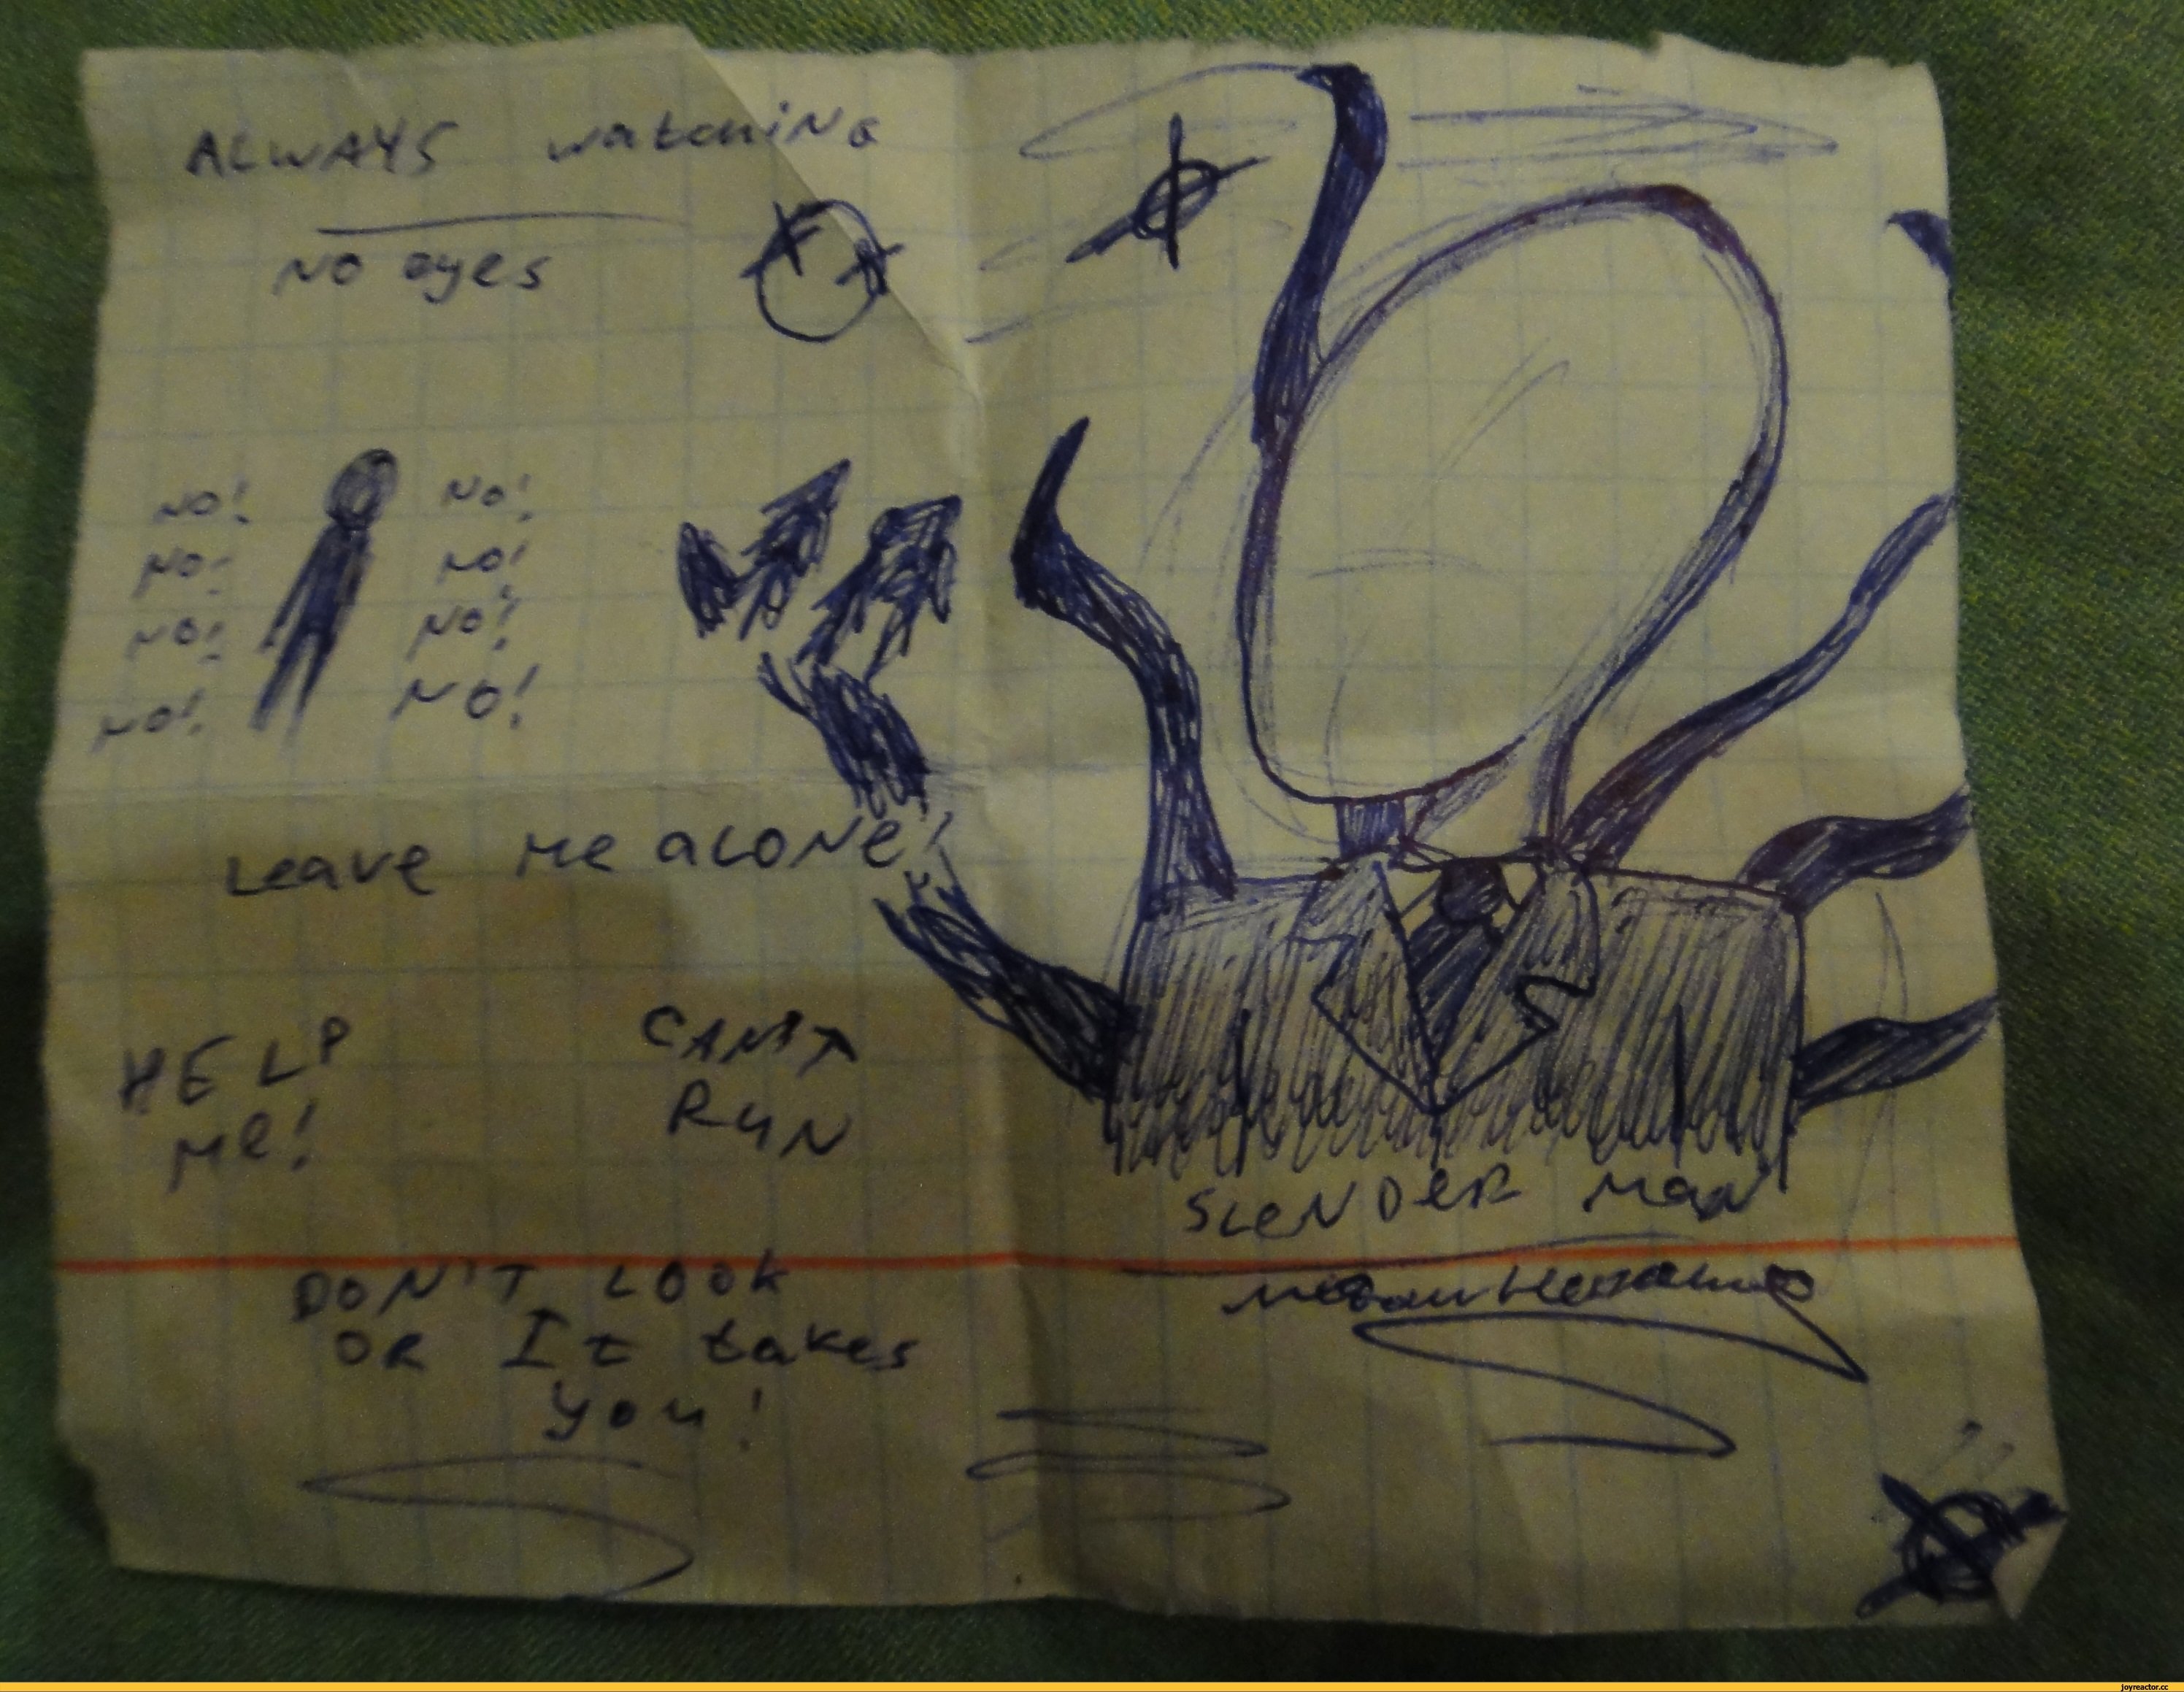 ALWAYS watching
No eyes
No! No!
No! No!
No! No!
No! No!
Leave me alone!
HELP
me!
CAN'T
RUN
SLENDER MaN
DON'T LOOK
OR It takes
you!
joyreactor.cc